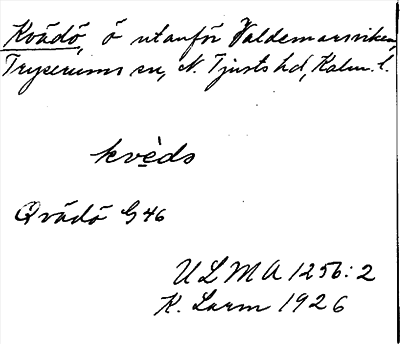 Kvädö, ö utanför Valdemarsviken,
Tryserums sn, N. Tjusts hd, Kalm. l.
kvèdo
Qvädö G46
ULMA 1256:2
K. Larm 1926